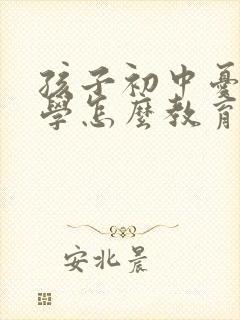 孩子初中憂
學怎麼教育
安北晨